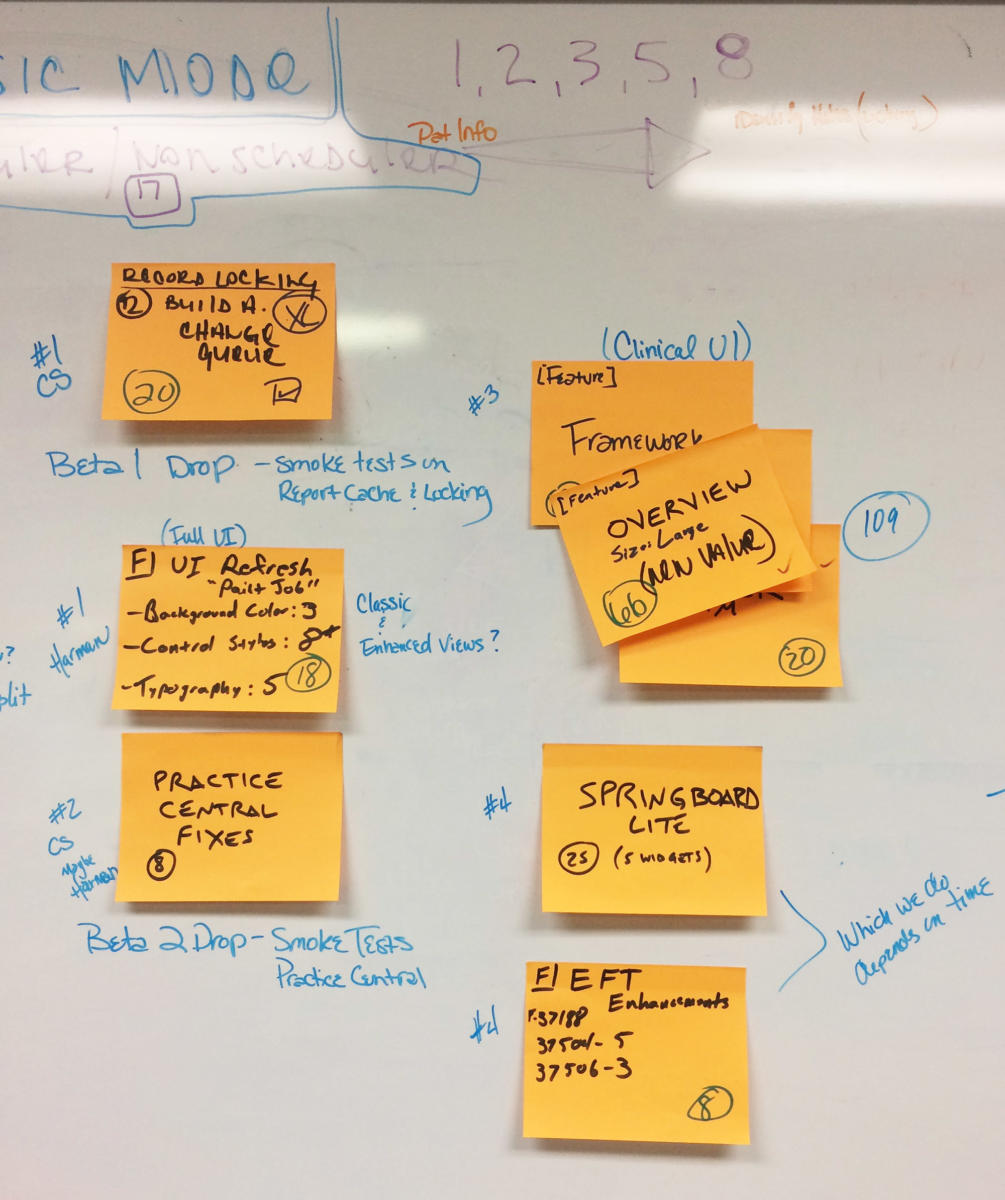 SIC MODE
1, 2, 3, 5, 8
Pat Info
ULER / NON SCHEDULER
17
RECORD LOCKING
BUILD A
XL
CHANGE
QUEUE
20
#1
CS
Beta 1 Drop - Smoke tests on
Report Cache & Locking
(Full UI)
F UI Refresh
"Paint Job"
- Background Color: 3
- Control Styles: 8+
- Typography: 5
18
#1
Harman
Classic
&
Enhanced Views?
plit
PRACTICE
CENTRAL
FIXES
8
#2
CS
Maybe
Harman
Beta 2 Drop - Smoke Tests
Practice Central
(Clinical UI)
#3
[Feature]
Framework
[Feature]
OVERVIEW
Size: Large
(NEW VALUE)
66
20
109
#4
SPRINGBOARD
LITE
25 (5 WIDGETS)
Which we do
depends on time
#4
F EFT
Enhancements
F-37188
37504 - 5
37506 - 3
8